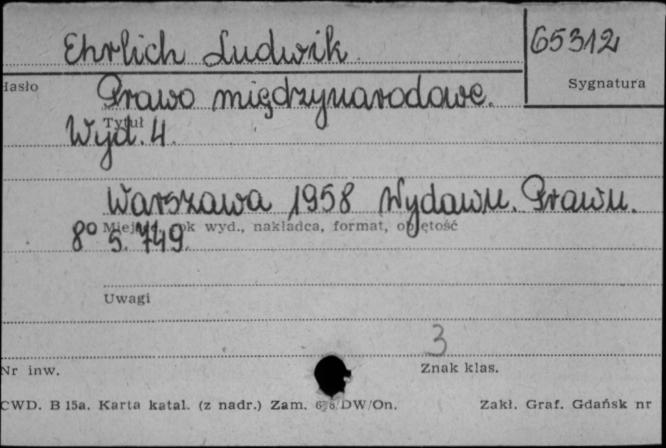 Ehrlich Ludwik.
65312
Hasło
Sygnatura
Prawo międzynarodowe.
Tytuł
Wyd. 4.
Warszawa 1958 Wydawn. Prawn.
Miejsce, rok wyd., nakładca, format, objętość
8° S. 749.
Uwagi
3
Nr inw.
Znak klas.
CWD. B 15a. Karta katal. (z nadr.) Zam. 678/DW/On.
Zakł. Graf. Gdańsk nr